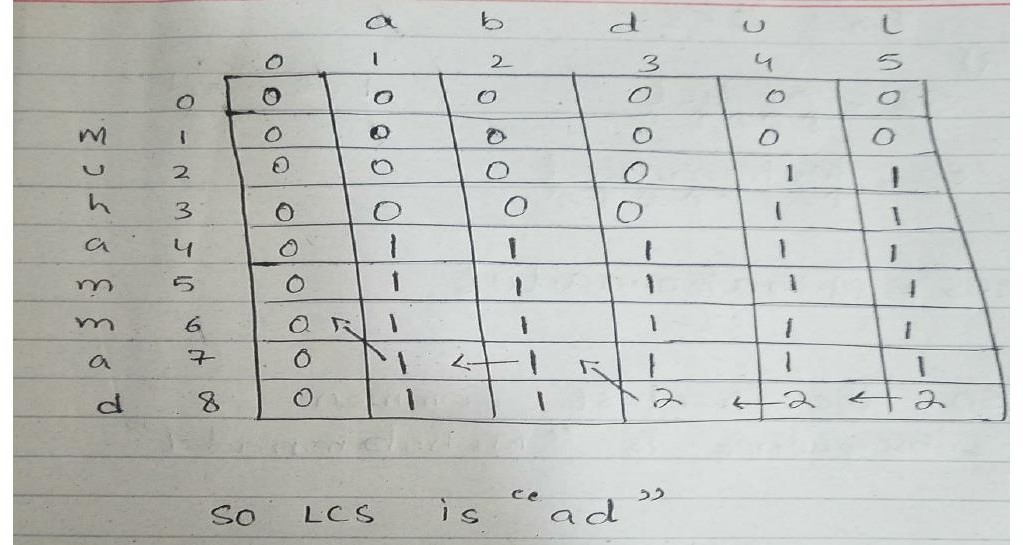 a b d u l
0 1 2 3 4 5
0 0 0 0 0 0 0
m 1 0 0 0 0 0 0
u 2 0 0 0 0 1 1
h 3 0 0 0 0 1 1
a 4 0 1 1 1 1 1
m 5 0 1 1 1 1 1
m 6 0 1 1 1 1 1
a 7 0 1 1 1 1 1
d 8 0 1 1 2 2 2
so LCS is "ad"